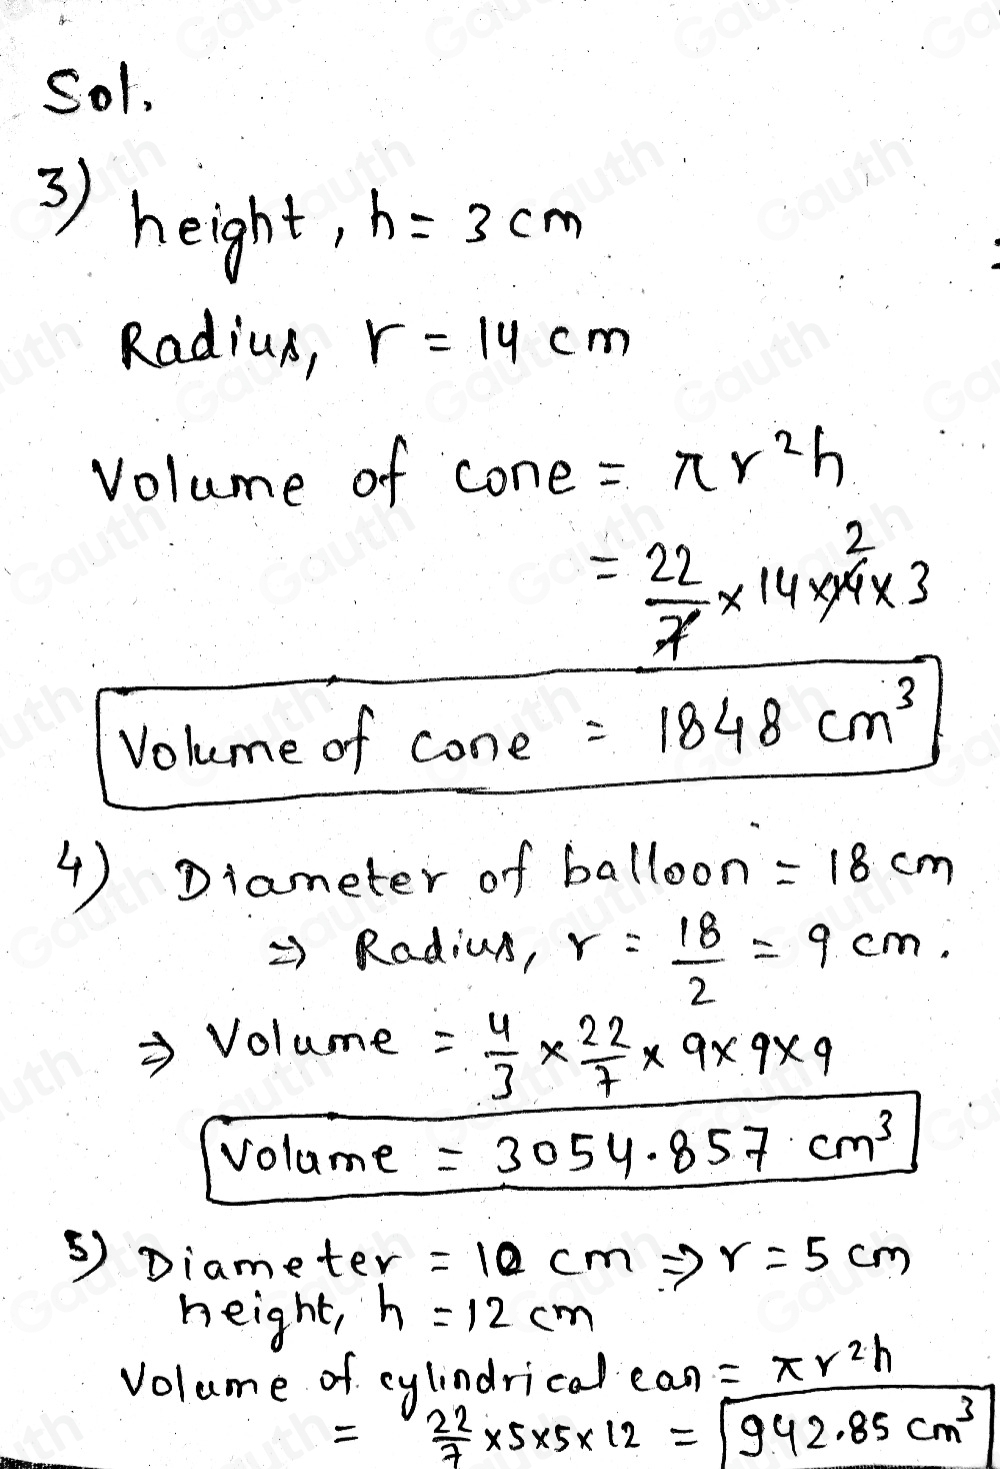 Sol.
3) height, h = 3 cm
Radius, r = 14 cm
Volume of cone = πr²h
= 22/7 × 14 × 14 2 × 3
Volume of cone = 1848 cm³
4) Diameter of balloon = 18 cm
⇒ Radius, r = 18/2 = 9 cm.
⇒ Volume = 4/3 × 22/7 × 9 × 9 × 9
Volume = 3054.857 cm³
5) Diameter = 10 cm ⇒ r = 5 cm
height, h = 12 cm
Volume of cylindrical can = πr²h
= 22/7 × 5 × 5 × 12 = 942.85 cm³
Gauth